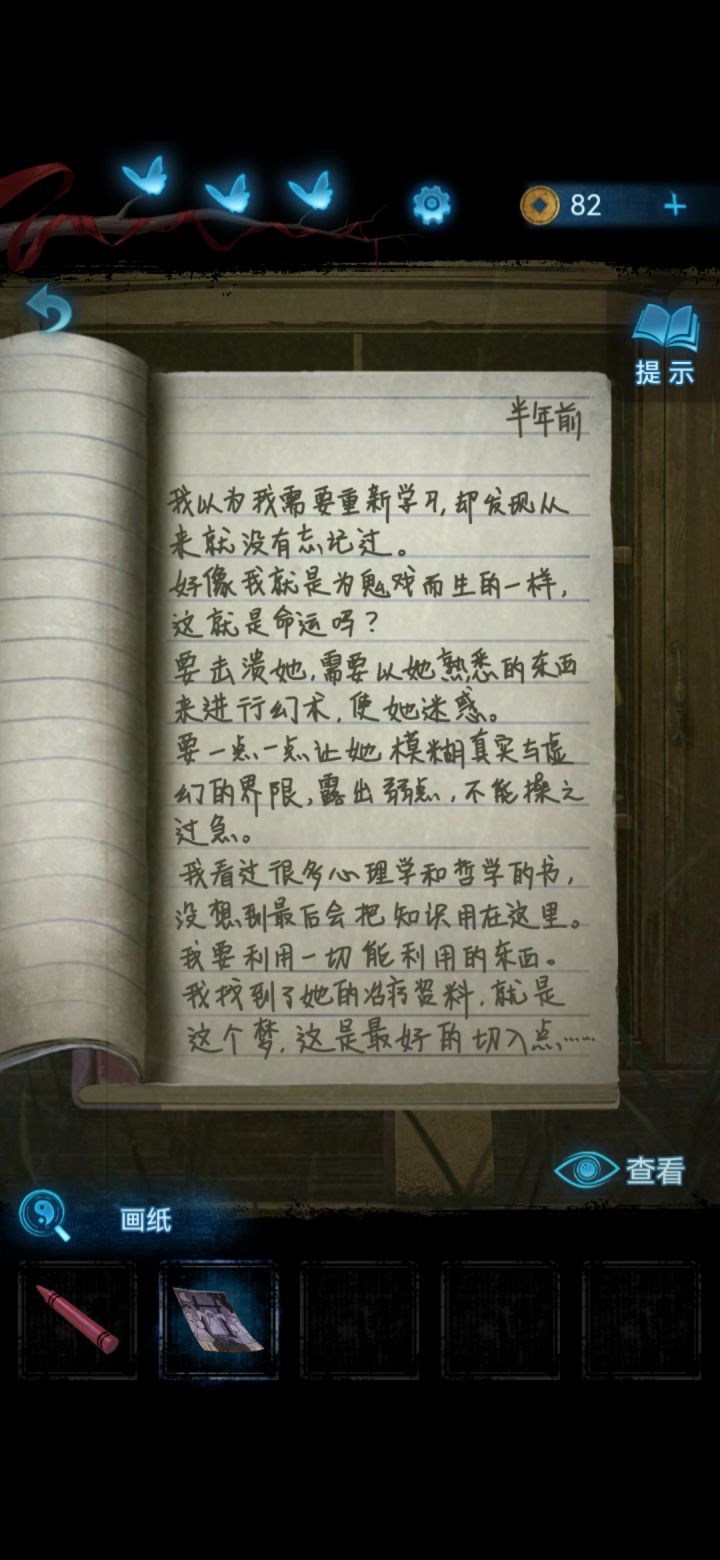 82
提示
半年前
我以为我需要重新学习,却发现从
来就没有忘记过。
好像我就是为鬼戏而生的一样,
这就是命运吗?
要击溃她,需要以她熟悉的东西
来进行幻术,使她迷惑。
要一点一点让她模糊真实与虚
幻的界限,露出弱点,不能操之
过急。
我看过很多心理学和哲学的书,
没想到最后会把知识用在这里。
我要利用一切能利用的东西。
我找到了她的治疗资料,就是
这个梦,这是最好的切入点……
查看
画纸